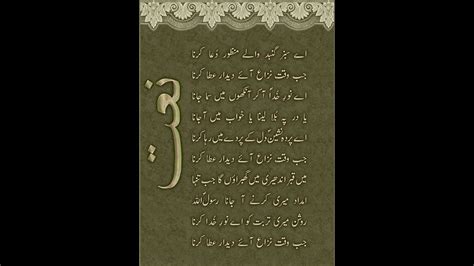 نعت
اے سبز گنبد والے منظور دُعا کرنا
جب وقت نزاع آئے دیدار عطا کرنا
اے نورِ خُدا آ کر آنکھوں میں سما جانا
یا در پہ بُلا لینا یا خواب میں آ جانا
اے پردہ نشیں دل کے پردے میں رہا کرنا
جب وقت نزاع آئے دیدار عطا کرنا
میں قبر اندھیری میں گھبراؤں گا جب تنہا
امداد میری کرنے آ جانا رسول اللہ
روشن میری تربت کو اے نورِ خُدا کرنا
جب وقت نزاع آئے دیدار عطا کرنا